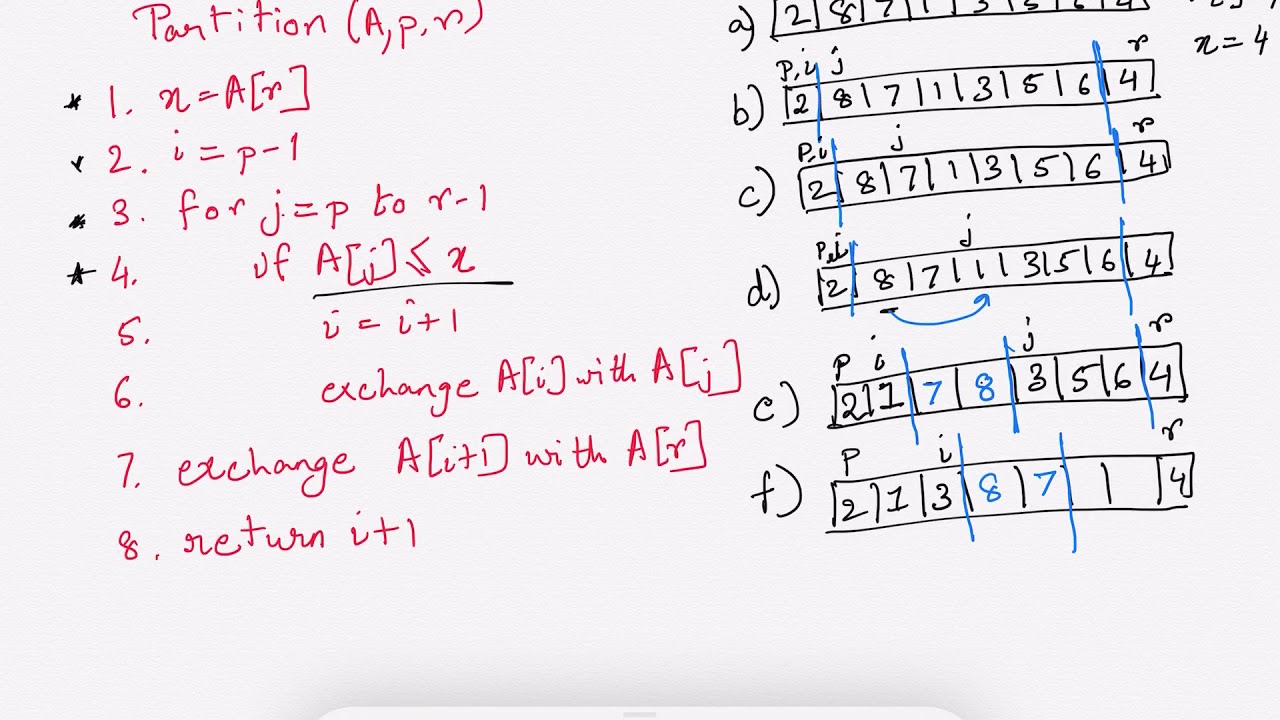 Partition (A, p, r)
* 1. x = A[r]
2. i = p-1
* 3. for j = p to r-1
* 4. if A[j] ≤ x
5. i = i+1
6. exchange A[i] with A[j]
7. exchange A[i+1] with A[r]
8. return i+1
a) |2|8|7|1|3|5|6|4|
x = 4
p, i j r
b) |2|8|7|1|3|5|6|4|
p, i j r
c) |2|8|7|1|3|5|6|4|
p, i j
d) |2|8|7|1|3|5|6|4|
p i j r
e) |2|1|7|8|3|5|6|4|
p i r
f) |2|1|3|8|7| | |4|